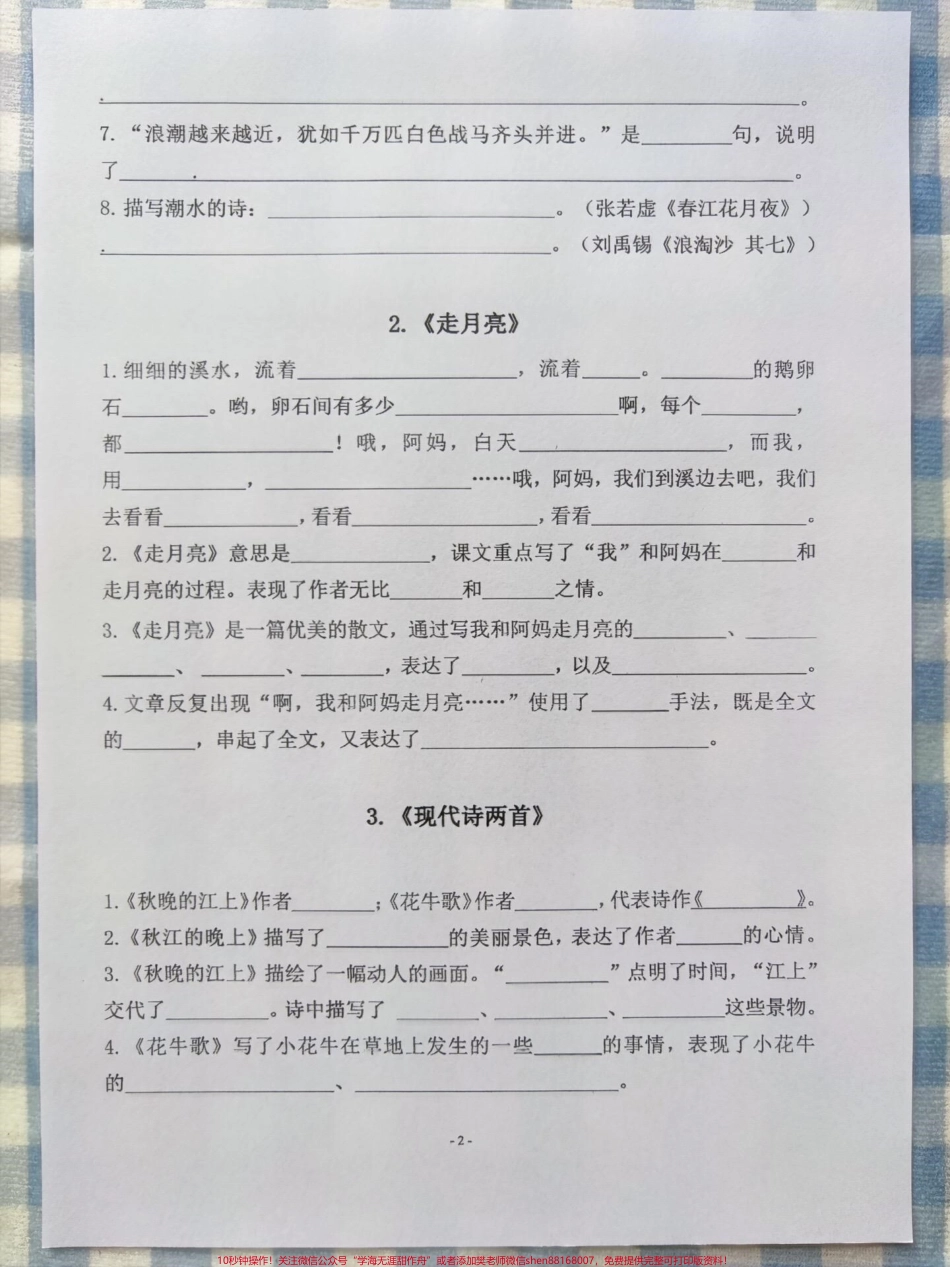 。
7. “浪潮越来越近，犹如千万匹白色战马齐头并进。”是________句，说明
了________。
8. 描写潮水的诗：________。（张若虚《春江花月夜》）
________。（刘禹锡《浪淘沙 其七》）
2.《走月亮》
1. 细细的溪水，流着________，流着________。________的鹅卵
石________。哟，卵石间有多少________啊，每个________，
都________！哦，阿妈，白天________，而我，
用________，________……哦，阿妈，我们到溪边去吧，我们
去看看________，看看________，看看________。
2.《走月亮》意思是________，课文重点写了“我”和阿妈在________和
走月亮的过程。表现了作者无比________和________之情。
3.《走月亮》是一篇优美的散文，通过写我和阿妈走月亮的________、________
________、________、________，表达了________，以及________。
4. 文章反复出现“啊，我和阿妈走月亮……”使用了________手法，既是全文
的________，串起了全文，又表达了________。
3.《现代诗两首》
1.《秋晚的江上》作者________；《花牛歌》作者________，代表诗作《________》。
2.《秋江的晚上》描写了________的美丽景色，表达了作者________的心情。
3.《秋晚的江上》描绘了一幅动人的画面。“________”点明了时间，“江上”
交代了________。诗中描写了 ________、________、________这些景物。
4.《花牛歌》写了小花牛在草地上发生的一些________的事情，表现了小花牛
的________、________。
- 2 -
10秒钟操作！关注微信公众号“学海无涯甜作舟”或者添加樊老师微信shen88168007，免费提供完整可打印版资料！